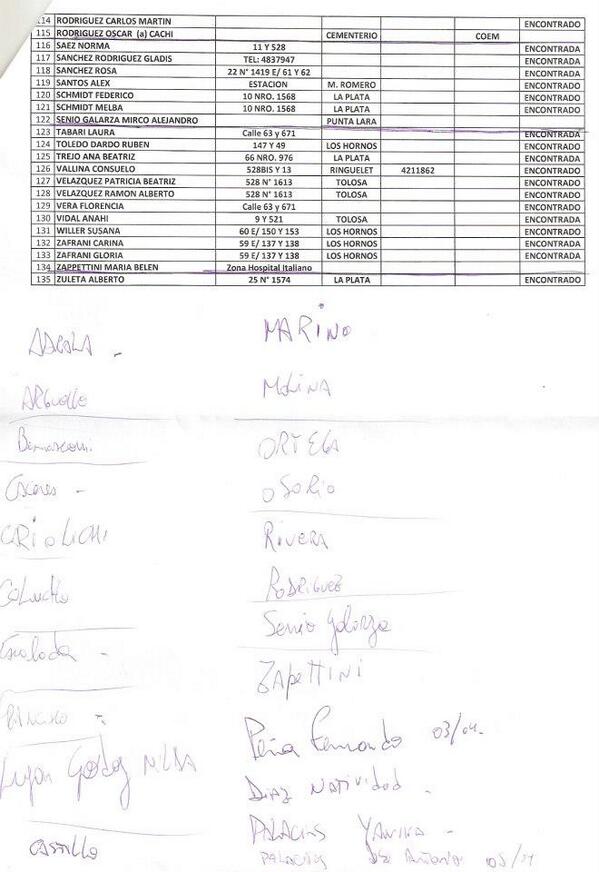 114 RODRIGUEZ CARLOS MARTIN ENCONTRADO
115 RODRIGUEZ OSCAR (a) CACHI CEMENTERIO COEM
116 SAEZ NORMA 11 Y 528 ENCONTRADA
117 SANCHEZ RODRIGUEZ GLADIS TEL: 4837947 ENCONTRADA
118 SANCHEZ ROSA 22 N° 1419 E/ 61 Y 62 ENCONTRADA
119 SANTOS ALEX ESTACION M. ROMERO ENCONTRADO
120 SCHMIDT FEDERICO 10 NRO. 1568 LA PLATA ENCONTRADO
121 SCHMIDT MELBA 10 NRO. 1568 LA PLATA ENCONTRADA
122 SENIO GALARZA MIRCO ALEJANDRO PUNTA LARA
123 TABARI LAURA Calle 63 y 671 ENCONTRADA
124 TOLEDO DARDO RUBEN 147 Y 49 LOS HORNOS ENCONTRADO
125 TREJO ANA BEATRIZ 66 NRO. 976 LA PLATA ENCONTRADA
126 VALLINA CONSUELO 528BIS Y 13 RINGUELET 4211862 ENCONTRADA
127 VELAZQUEZ PATRICIA BEATRIZ 528 N° 1613 TOLOSA ENCONTRADA
128 VELAZQUEZ RAMON ALBERTO 528 N° 1613 TOLOSA ENCONTRADO
129 VERA FLORENCIA Calle 63 y 671 ENCONTRADA
130 VIDAL ANAHI 9 Y 521 TOLOSA ENCONTRADA
131 WILLER SUSANA 60 E/ 150 Y 153 LOS HORNOS ENCONTRADA
132 ZAFRANI CARINA 59 E/ 137 Y 138 LOS HORNOS ENCONTRADA
133 ZAFRANI GLORIA 59 E/ 137 Y 138 LOS HORNOS ENCONTRADA
134 ZAPPETTINI MARIA BELEN Zona Hospital Italiano
135 ZULETA ALBERTO 25 N° 1574 LA PLATA ENCONTRADO
MARINO
Arguello
MOLINA
Bernasconi
ORTEGA
Caceres -
OSORIO
RIVERA
RODRIGUEZ
Senio Galarza
Escalada -
ZAPETTINI
Peña Fernando 03/04.
Lujan Godoy NILDA
DIAZ NATIVIDAD -
CASTILLO
PALACIOS YANINA -
PALACIOS